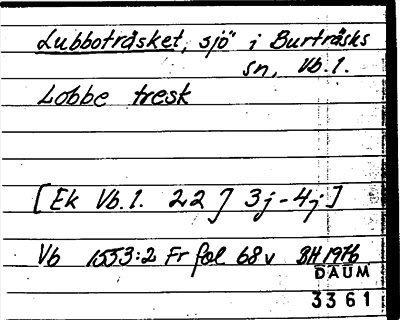 Lubboträsket, sjö i Burträsks
sn, Vb. l.
Lobbe tresk
[Ek Vb. l. 22 J 3j-4j]
Vb 1553:2 Fr fol 68v BH 1976
DAUM
3361